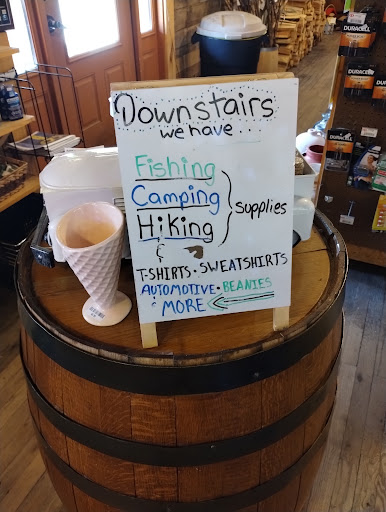 Downstairs
we have . . .
Fishing
Camping
Hiking
} Supplies
&
T-SHIRTS • SWEATSHIRTS
AUTOMOTIVE • BEANIES
& MORE
DURACELL
DURACELL
DURACELL